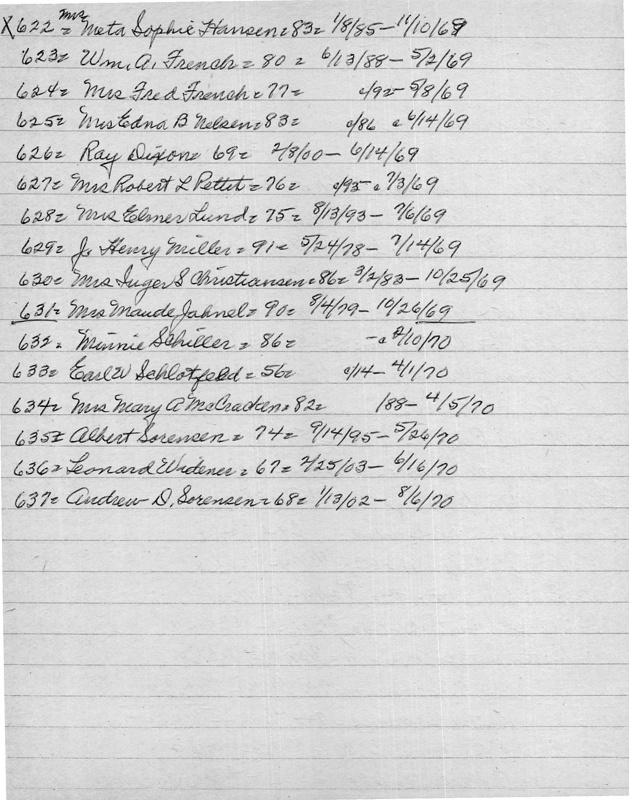 X 622 = Mrs Meta Sophie Hansen = 83 = 1/8/85 - 11/10/69
623 = Wm. A. French = 80 = 6/13/88 - 5/2/69
624 = Mrs Fred French = 77 = c/92 - 5/8/69
625 = Mrs Edna B Nelsen = 83 = c/86 c 6/14/69
626 = Ray Dixon = 69 = 2/8/00 - 6/14/69
627 = Mrs Robert L Pettit = 76 = c/93 - c 7/3/69
628 = Mrs Elmer Lund = 75 = 8/13/93 - 7/6/69
629 = J. Henry Miller = 91 = 5/24/78 - 7/14/69
630 = Mrs Inger S Christiansen = 86 = 3/2/83 - 10/25/69
631 = Mrs Maude Jahnel = 90 = 8/4/79 - 10/26/69
632 = Minnie Schiller = 86 = - c 2/10/70
633 = Earl W Schlotfeld = 56 = c/14 - 4/1/70
634 = Mrs Mary A McCracken = 82 = /88 - 4/5/70
635 = Albert Sorensen = 74 = 9/14/95 - 5/26/70
636 = Leonard Widener = 67 = 2/25/03 - 6/16/70
637 = Andrew D. Sorensen = 68 = 1/13/02 - 8/6/70